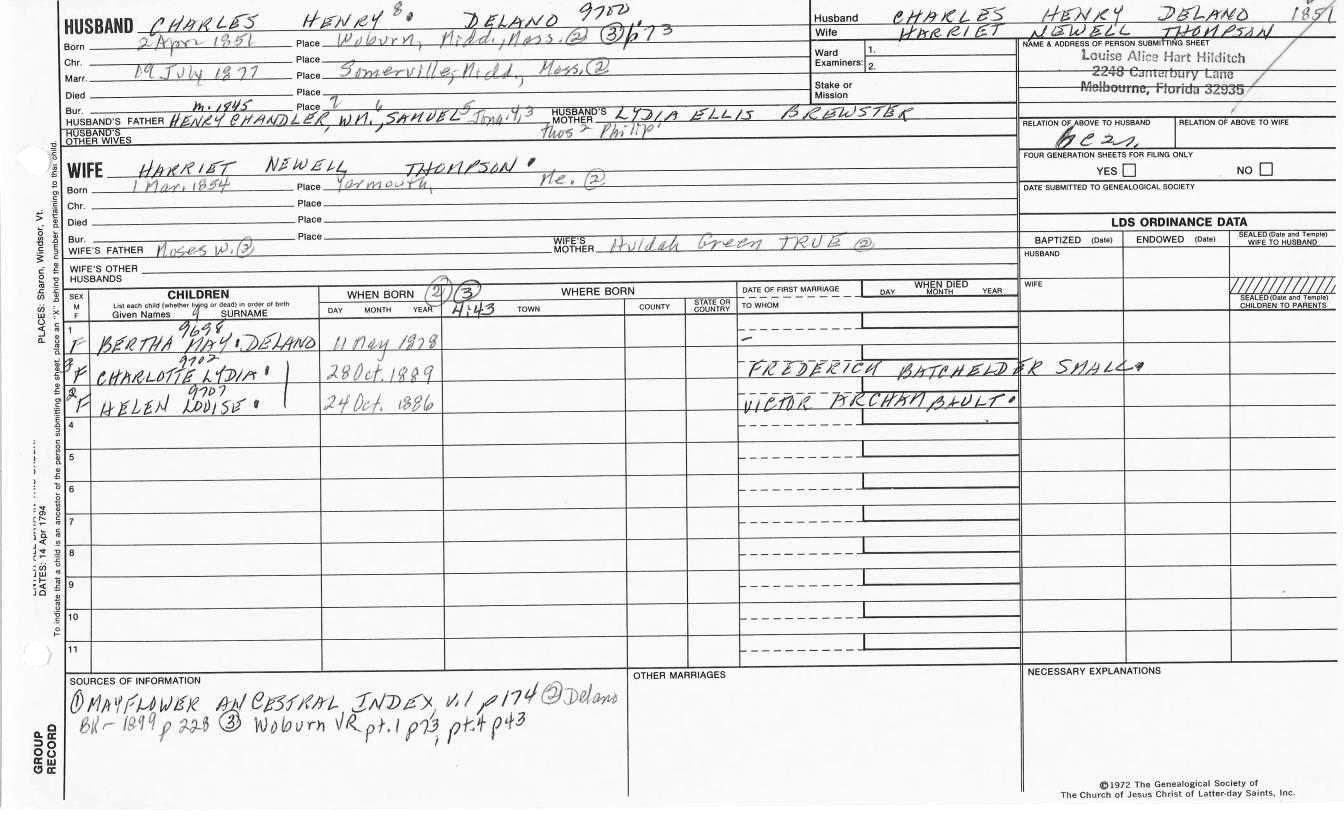 HUSBAND CHARLES HENRY 8 DELANO 9700
Born 2 Apr 1851 Place Woburn, Midd., Mass. ② ③ p73
Chr. Place
Marr. 19 July 1877 Place Somerville, Midd., Mass. ②
Died Place
Bur. m. 1845 Place 7 6
HUSBAND'S FATHER HENRY CHANDLER, WM., SAMUEL 5 Jona. 4,3 HUSBAND'S MOTHER LYDIA ELLIS BREWSTER
HUSBAND'S OTHER WIVES Thos 2 Philip 1
WIFE HARRIET NEWELL THOMPSON
Born 1 Mar. 1854 Place Yarmouth, Me. ②
Chr. Place
Died Place
Bur. Place
WIFE'S FATHER Moses W. ③ WIFE'S MOTHER Huldah Green TRUE ②
WIFE'S OTHER HUSBANDS
Husband CHARLES HENRY DELANO 1851
Wife HARRIET NEWELL THOMPSON
Ward Examiners: 1.
2.
Stake or Mission
NAME & ADDRESS OF PERSON SUBMITTING SHEET
Louise Alice Hart Hilditch
2248 Canterbury Lane
Melbourne, Florida 32935
RELATION OF ABOVE TO HUSBAND RELATION OF ABOVE TO WIFE
FOUR GENERATION SHEETS FOR FILING ONLY
YES NO
DATE SUBMITTED TO GENEALOGICAL SOCIETY
LDS ORDINANCE DATA
BAPTIZED (Date) ENDOWED (Date) SEALED (Date and Temple) WIFE TO HUSBAND
HUSBAND
WIFE
SEALED (Date and Temple) CHILDREN TO PARENTS
SEX M F
CHILDREN
List each child (whether living or dead) in order of birth
Given Names 9 SURNAME
WHEN BORN ② ③
DAY MONTH YEAR
WHERE BORN
4:43 TOWN COUNTY STATE OR COUNTRY
DATE OF FIRST MARRIAGE
TO WHOM
WHEN DIED
DAY MONTH YEAR
1 9698
F BERTHA MAY DELANO 11 May 1878 —
3 9702
F CHARLOTTE LYDIA 28 Oct. 1889 FREDERICK BATCHELDER SMALL
2 9707
F HELEN LOUISE 24 Oct. 1886 VICTOR ARCHAMBAULT
4
5
6
7
8
9
10
11
SOURCES OF INFORMATION
① MAYFLOWER ANCESTRAL INDEX, v.1 p174 ② Delano
BK - 1899 p 228 ③ Woburn VR pt.1 p73, pt.4 p43
OTHER MARRIAGES
NECESSARY EXPLANATIONS
©1972 The Genealogical Society of
The Church of Jesus Christ of Latter-day Saints, Inc.
PLACES: Sharon, Windsor, Vt.
DATES: 14 Apr 1794
To indicate that a child is an ancestor of the person submitting the sheet, place an "X" behind the number pertaining to that child.
GROUP RECORD